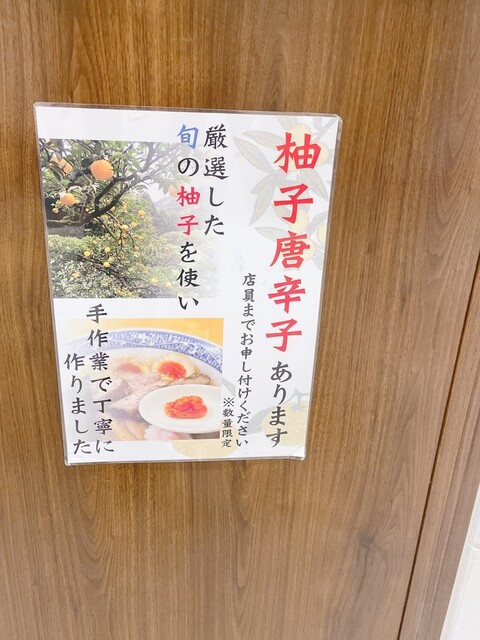 柚子唐辛子あります
店員までお申し付けください
※数量限定
厳選した
旬の柚子を使い
手作業で丁寧に
作りました